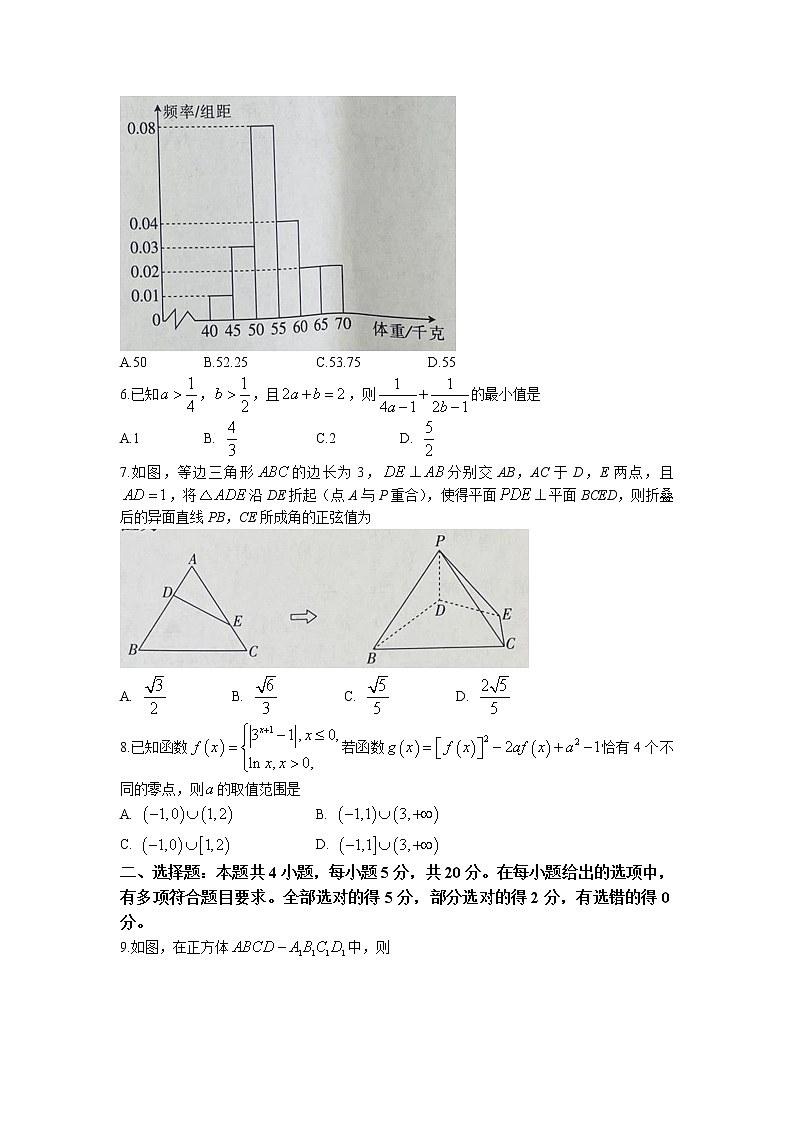 频率/组距
0.08
0.04
0.03
0.02
0.01
0
40 45 50 55 60 65 70 体重/千克
A.50 B.52.25 C.53.75 D.55
6.已知a>1/4，b>1/2，且2a+b=2，则1/(4a-1)+1/(2b-1)的最小值是
A.1 B. 4/3 C.2 D. 5/2
7.如图，等边三角形ABC的边长为3，DE⊥AB分别交AB，AC于D，E两点，且
AD=1，将△ADE沿DE折起（点A与P重合），使得平面PDE⊥平面BCED，则折叠
后的异面直线PB，CE所成角的正弦值为
A
D
E
B
C
P
D
E
B
C
A. √3/2 B. √6/3 C. √5/5 D. 2√5/5
8.已知函数f(x)={|3^(x+1)-1|,x≤0, ln x,x>0, 若函数g(x)=[f(x)]²-2af(x)+a²-1恰有4个不
同的零点，则a的取值范围是
A. (-1,0)∪(1,2) B. (-1,1)∪(3,+∞)
C. (-1,0)∪[1,2) D. (-1,1]∪(3,+∞)
二、选择题：本题共4小题，每小题5分，共20分。在每小题给出的选项中，
有多项符合题目要求。全部选对的得5分，部分选对的得2分，有选错的得0
分。
9.如图，在正方体ABCD-A₁B₁C₁D₁中，则